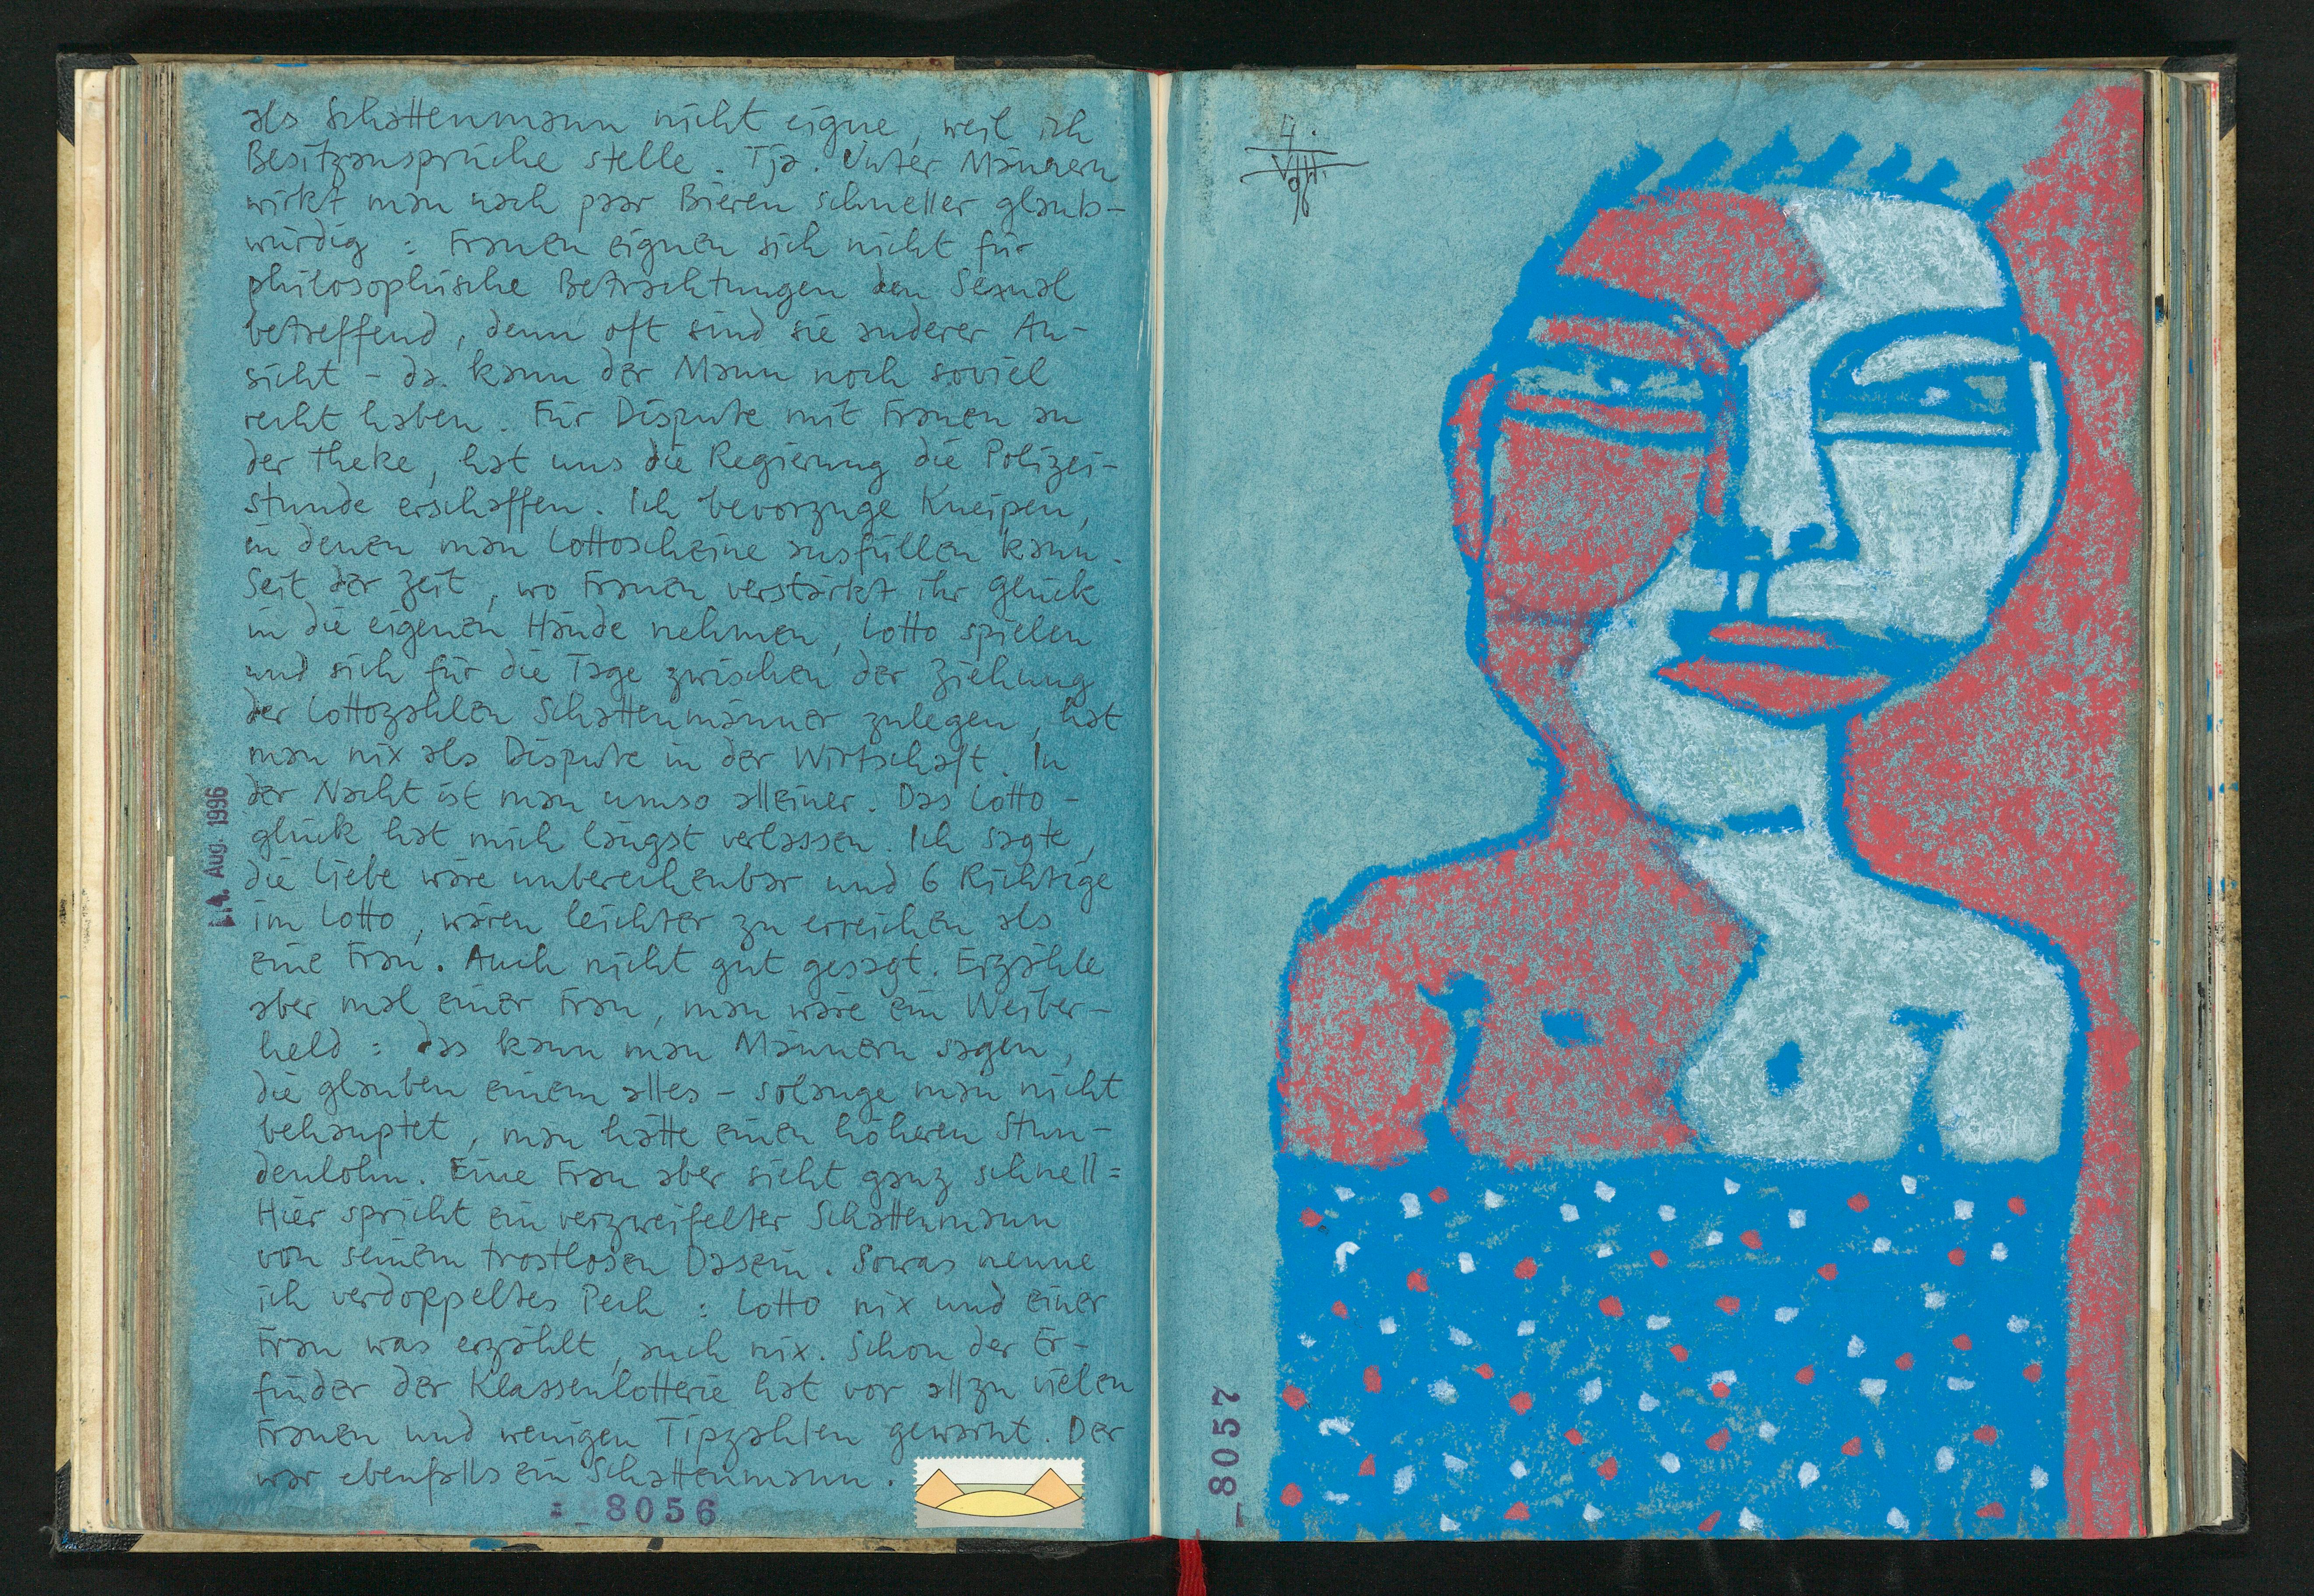 als Schattenmann nicht eigne, weil ich
Besitzansprüche stelle. Tja. Unter Männern
wirkt man nach paar Bieren schneller glaub-
würdig : Frauen eignen sich nicht für
philosophische Betrachtungen den Sexual
betreffend, denn oft sind sie anderer An-
sicht - da kann der Mann noch soviel
recht haben. Für Dispute mit Frauen an
der Theke, hat uns die Regierung die Polizei-
stunde erschaffen. Ich bevorzuge Kneipen,
in denen man Lottoscheine ausfüllen kann.
Seit der Zeit, wo Frauen verstärkt ihr Glück
in die eigenen Hände nehmen, Lotto spielen
und sich für die Tage zwischen der Ziehung
der Lottozahlen Schattenmänner zulegen, hat
man nix als Dispute in der Wirtschaft. In
der Nacht ist man umso alleiner. Das Lotto-
glück hat mich längst verlassen. Ich sagte,
die Liebe wäre unberechenbar und 6 Richtige
im Lotto, wären leichter zu erreichen als
eine Frau. Auch nicht gut gesagt. Erzähle
aber mal einer Frau, man wäre ein Weiber-
held : das kann man Männern sagen,
die glauben einem alles - solange man nicht
behauptet, man hätte einen höheren Stun-
denlohn. Eine Frau aber sieht ganz schnell =
Hier spricht ein verzweifelter Schattenmann
von seinem trostlosen Dasein. Sowas nenne
ich verdoppeltes Pech : Lotto nix und einer
Frau was erzählt, auch nix. Schon der Er-
finder der Klassenlotterie hat vor allzu vielen
Frauen und wenigen Tipzahlen gewarnt. Der
war ebenfalls ein Schattenmann.
4. Aug. 1996
8056
4.
VIII.
96
8057